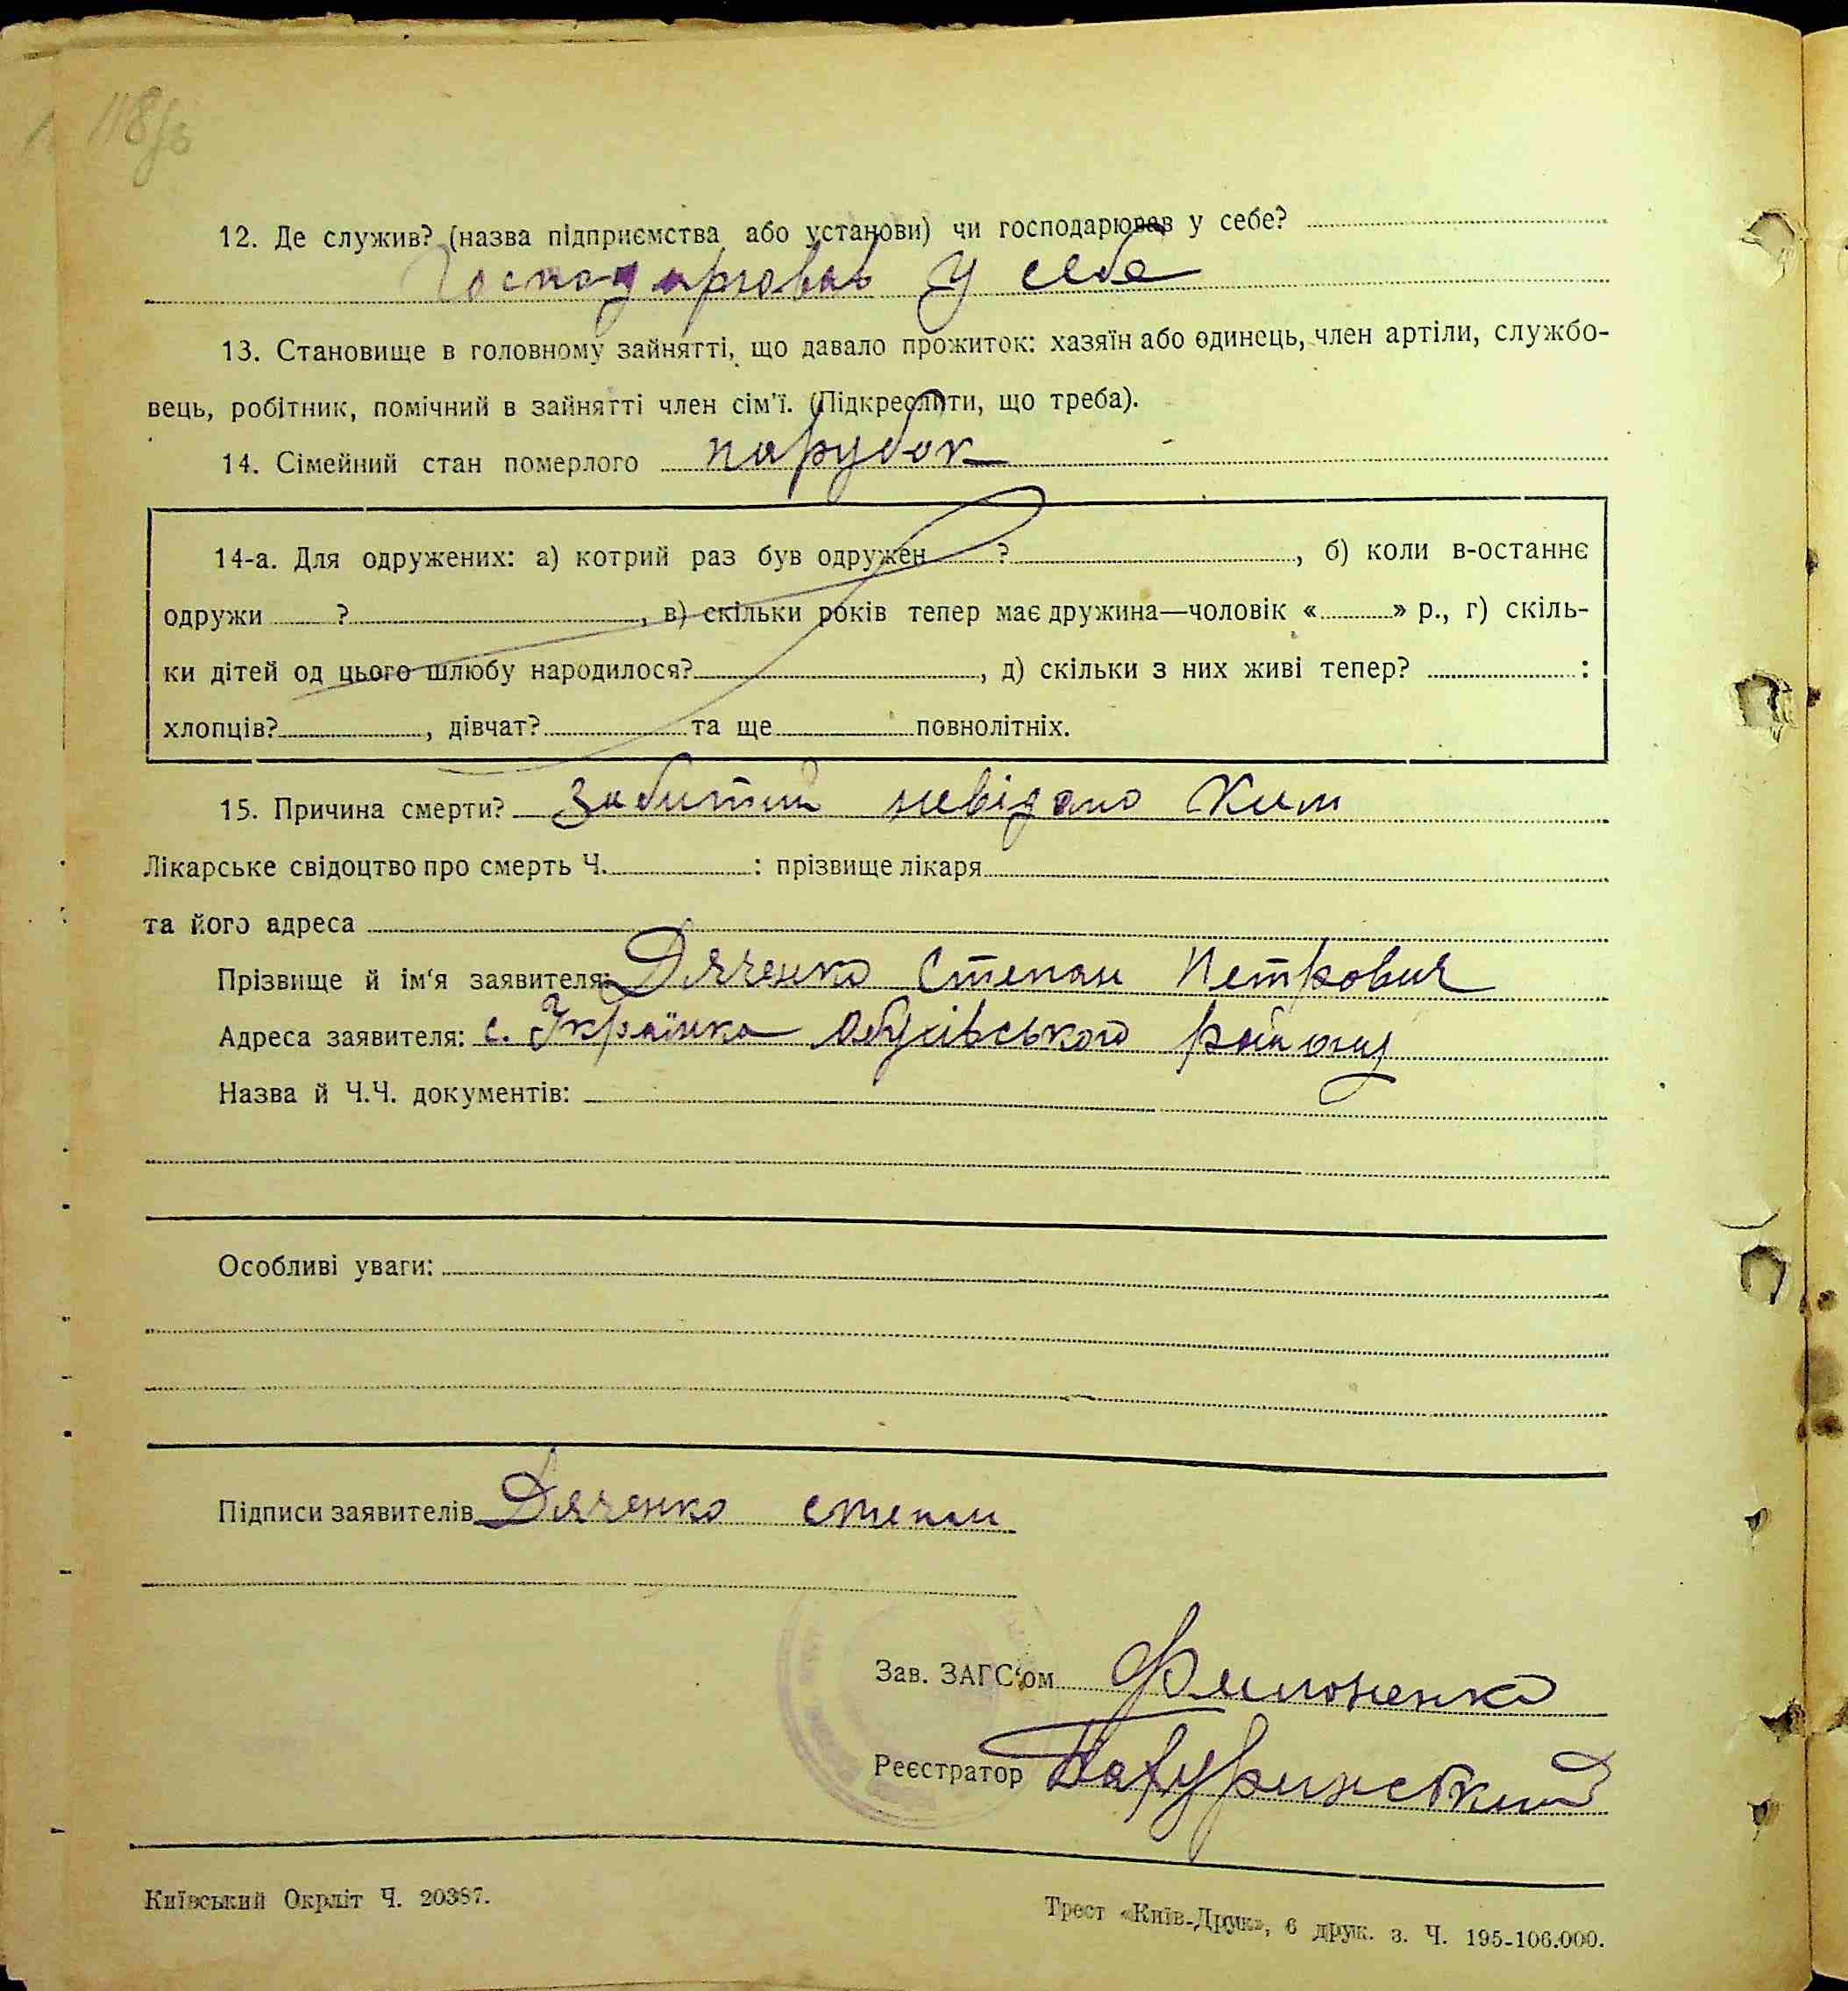 118
12. Де служив? (назва підприємства або установи) чи господарював у себе?
Господарював у себе
13. Становище в головному зайнятті, що давало прожиток: хазяїн або одинець, член артіли, службо-
вець, робітник, помічний в зайнятті член сім'ї. (Підкреслити, що треба).
14. Сімейний стан померлого парубок
14-а. Для одружених: а) котрий раз був одружен ? , б) коли в-останнє
одружи ? , в) скільки років тепер має дружина—чоловік « » р., г) скіль-
ки дітей од цього шлюбу народилося? , д) скільки з них живі тепер? :
хлопців? , дівчат? та ще повнолітніх.
15. Причина смерти? забитий невідомо Ким
Лікарське свідоцтво про смерть Ч. : прізвище лікаря
та його адреса
Прізвище й ім'я заявителя: Дяченко Степан Петрович
Адреса заявителя: с. Українка Обухівського району
Назва й Ч.Ч. документів:
Особливі уваги:
Підписи заявителів Дяченко степан
Зав. ЗАГС'ом Филоненко
Реєстратор
Київський Окрліт Ч. 20387.
Трест «Київ-Друк», 6 друк. з. Ч. 195-106.000.